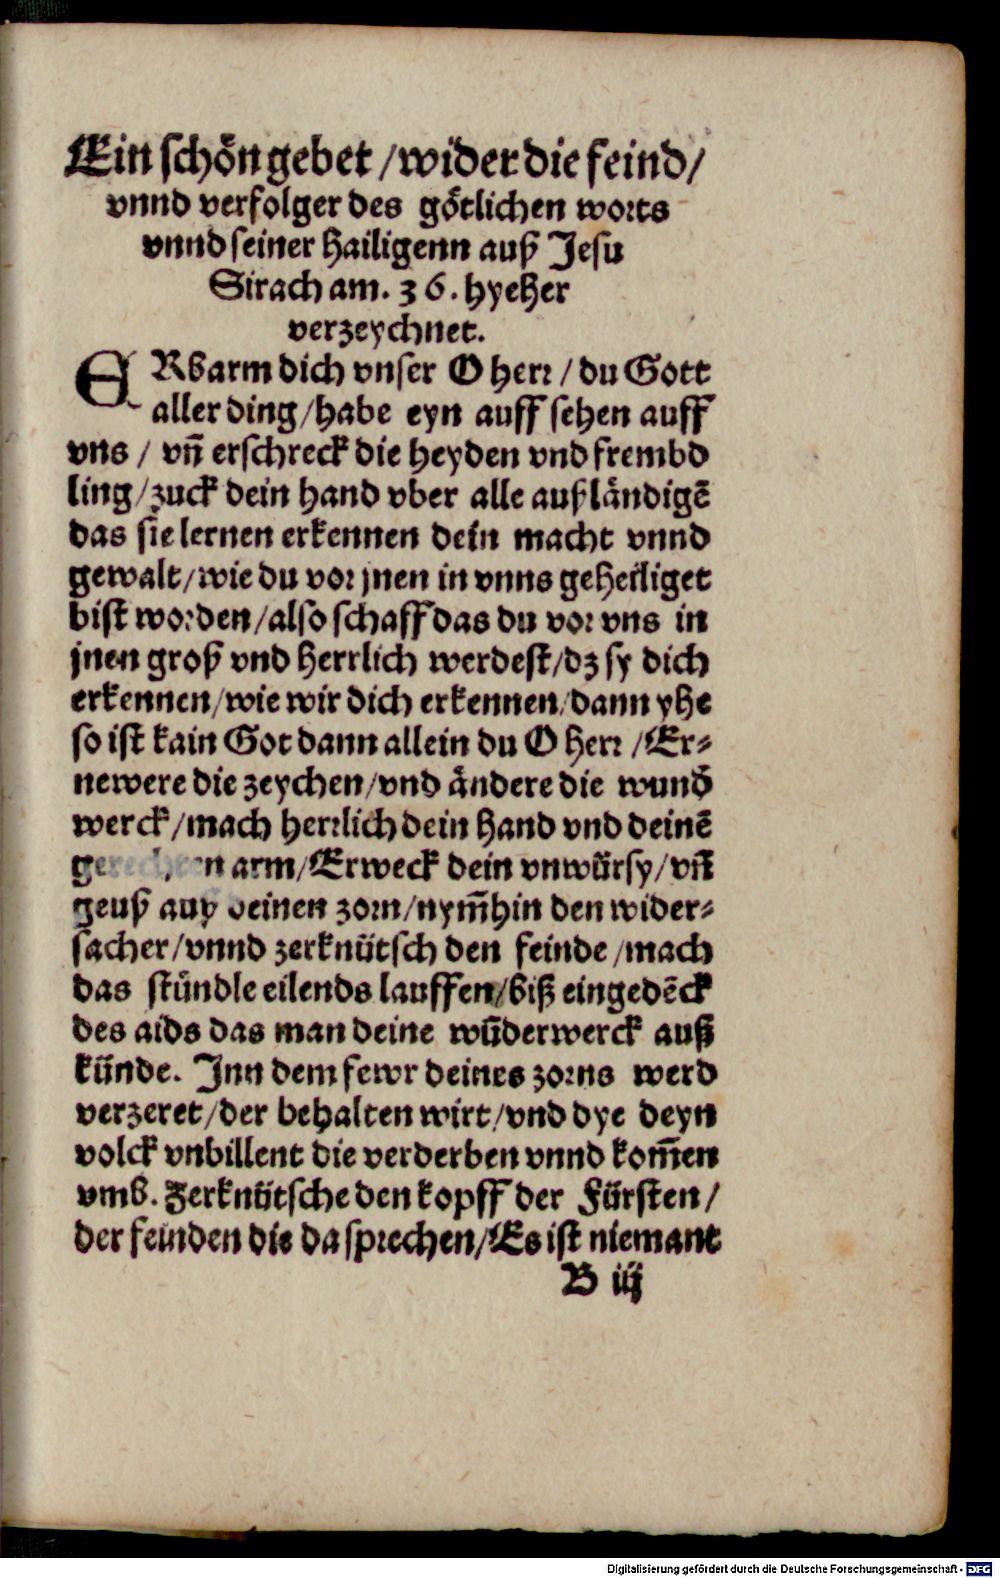 Ein schoͤn gebet / wider die feind /
vnnd verfolger des goͤtlichen worts
vnnd seiner Hailigenn auß Jesu
Sirach am. 36. hyeher
verzeychnet.
ERbarm dich vnser O herr / du Gott
aller ding / habe eyn auff sehen auff
vns / vñ erschreck die heyden vnd frembd
ling / zuck dein hand vber alle außlaͤndigẽ
das sie lernen erkennen dein macht vnnd
gewalt / wie du vor jnen in vnns geheiliget
bist worden / also schaff das du vor vns in
jnen groß vnd herrlich werdest / dz sy dich
erkennen / wie wir dich erkennen / dann yhe
so ist kain Got dann allein du O herr / Er⸗
newere die zeychen / vnd aͤndere die wund̃
werck / mach herrlich dein hand vnd deinẽ
gerechten arm / Erweck dein vnwuͤrsy / vñ
geuß auß deinen zorn / nym̃ hin den wider⸗
sacher / vnnd zerknuͤtsch den feinde / mach
das stuͤndle eilends lauffen / biß eingedẽck
des aids das man deine wũderwerck auß
kuͤnde. Inn dem fewr deines zorns werd
verzeret / der behalten wirt / vnd dye deyn
volck vnbillent die verderben vnnd kom̃en
vmb. Zerknuͤtsche den kopff der Fuͤrsten /
der feinden die da sprechen / Es ist niemant
B iij
Digitalisierung gefördert durch die Deutsche Forschungsgemeinschaft - DFG